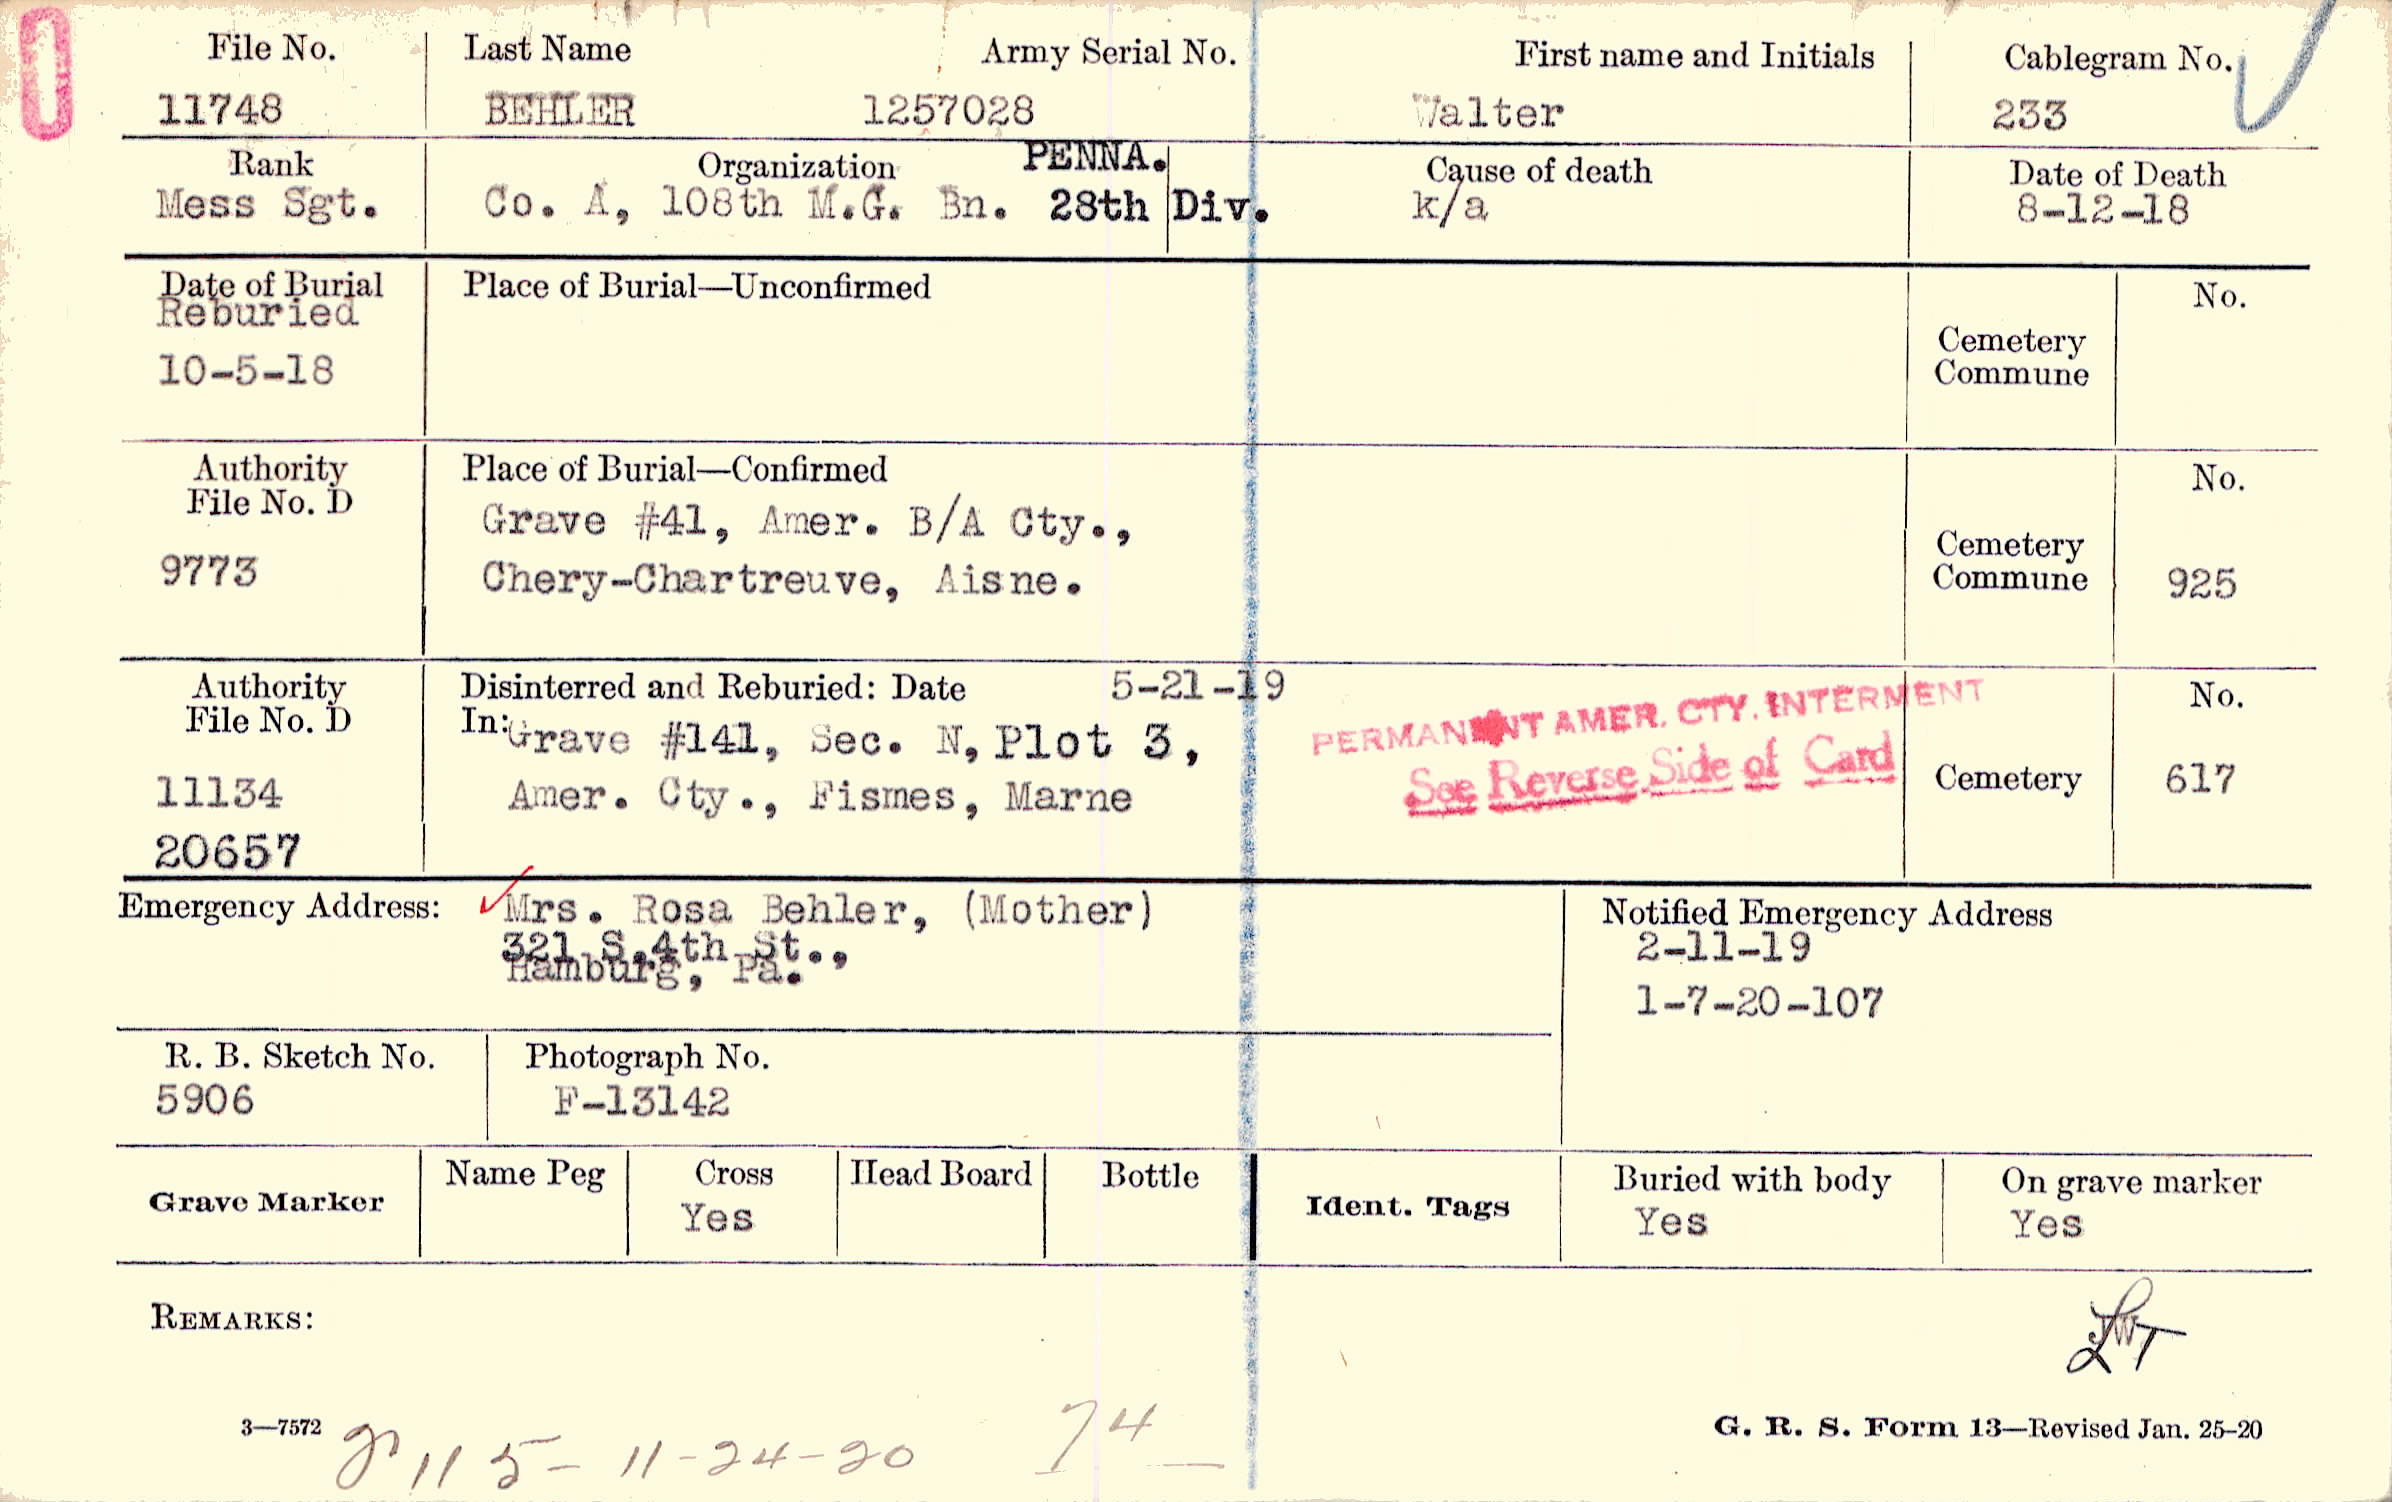 File No. Last Name Army Serial No. First name and Initials Cablegram No.
11748 BEHLER 1257028 Walter 233
Rank Organization PENNA. Cause of death Date of Death
Mess Sgt. Co. A, 108th M.G. Bn. 28th Div. k/a 8-12-18
Date of Burial Place of Burial—Unconfirmed No.
Reburied
10-5-18
Cemetery
Commune
Authority Place of Burial—Confirmed No.
File No. D
Grave #41, Amer. B/A Cty.,
9773 Chery-Chartreuve, Aisne.
Cemetery
Commune 925
Authority Disinterred and Reburied: Date 5-21-19 No.
File No. D In: Grave #141, Sec. N, Plot 3,
PERMANENT AMER. CTY. INTERMENT
See Reverse Side of Card
11134 Amer. Cty., Fismes, Marne Cemetery 617
20657
Emergency Address: Mrs. Rosa Behler, (Mother) Notified Emergency Address
321 S.4th St., 2-11-19
Hamburg, Pa.
1-7-20-107
R. B. Sketch No. Photograph No.
5906 F-13142
Grave Marker Name Peg Cross Head Board Bottle Ident. Tags Buried with body On grave marker
Yes Yes Yes
REMARKS:
3—7572 G. R. S. Form 13—Revised Jan. 25-20
115- 11-24-20 74